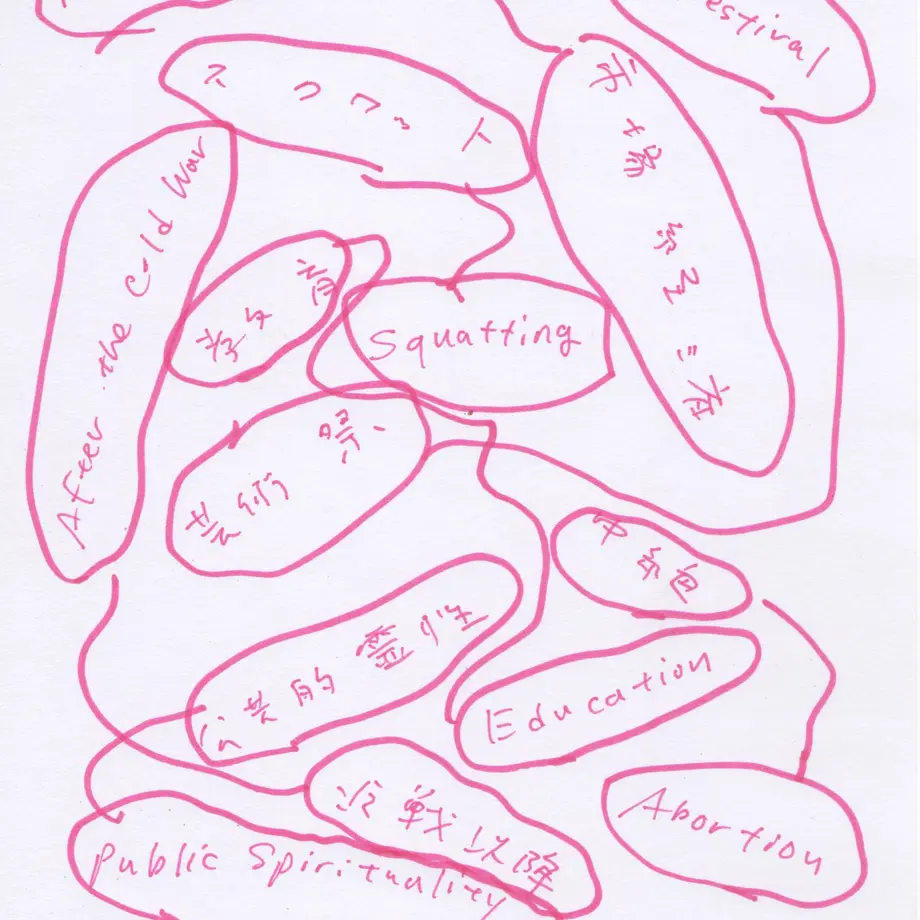 estival
スクワット
After the Cold War
教育
Squatting
芸術祭
中絶
公共的霊性
Education
冷戦以降
Abortion
public Spirituality